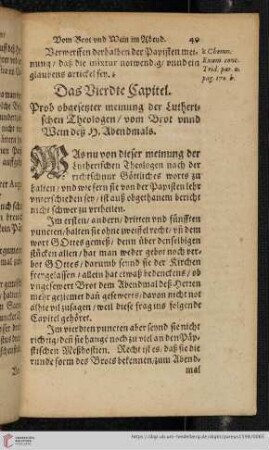 Vom Brot vnd Wein im Abend. 49
Verwerffen derhalben der Papisten mei-
nung / daß die mixtur notwendig / vnd ein
glaubens artickel sey. z
z Chemn.
Exam. conc.
Trid. par. 2.
pag. 170. b.
Das Vierdte Capitel.
Prob obgesetzter meinung der Lutheri-
schen Theologen / vom Brot vnnd
Wein deß H. Abendmals.
WAs nu von dieser meinung der
Lutherischen Theologen nach der
richtschnur Göttliches worts zu
halten / vnd wie fern sie von der Papisten lehr
vnterschieden sey / ist auß obgethanem bericht
nicht schwer zu vrtheilen.
Im ersten / andern / dritten vnd fünfften
puncten / halten sie ohne zweifel recht / vñ dem
wort GOttes gemeß / denn über denselbigen
stücken allen / hat man weder gebot noch ver-
bot GOttes / darumb seind sie der Kirchen
freygelassen / allein hat etwas bedenckens / ob
vngesewert Brot dem Abendmal deß Herren
mehr geziemet dañ gesewert / davon nicht not
alhie viel zusagen / weil diese frag ins folgende
Capitel gehöret.
Im vierdten puncten aber seind sie nicht
richtig / deñ sie hange noch zu viel an den Päp-
stischen Meßhostien. Recht ist es daß sie die
runde form des Brots bekennen / zum Abend-
mal